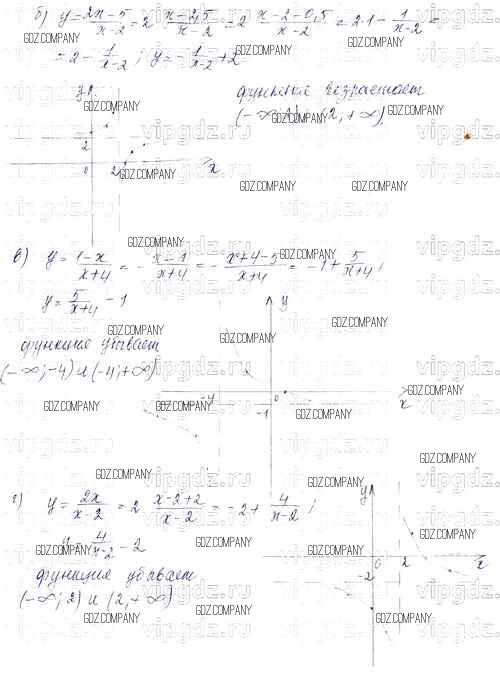 б) y = 2x-5/x-2 = 2 x-2,5/x-2 = 2 x-2-0,5/x-2 = 2·1 - 1/x-2 =
= 2 - 1/x-2 ; y = - 1/x-2 + 2
функция возрастает
(-∞; 2) и (2, +∞)
y
2
0 2 x
в) y = 1-x/x+4 = - x-1/x+4 = - x+4-5/x+4 = -1 + 5/x+4 ;
y = 5/x+4 - 1
функция убывает
(-∞; -4) и (-4; +∞)
y
-4 0 x
-1
г) y = 2x/x-2 = 2 x-2+2/x-2 = -2 + 4/x-2 ;
y = 4/x-2 - 2
функция убывает
(-∞; 2) и (2, +∞)
y
0 2 x
-2
GDZ.COMPANY
vipgdz.ru